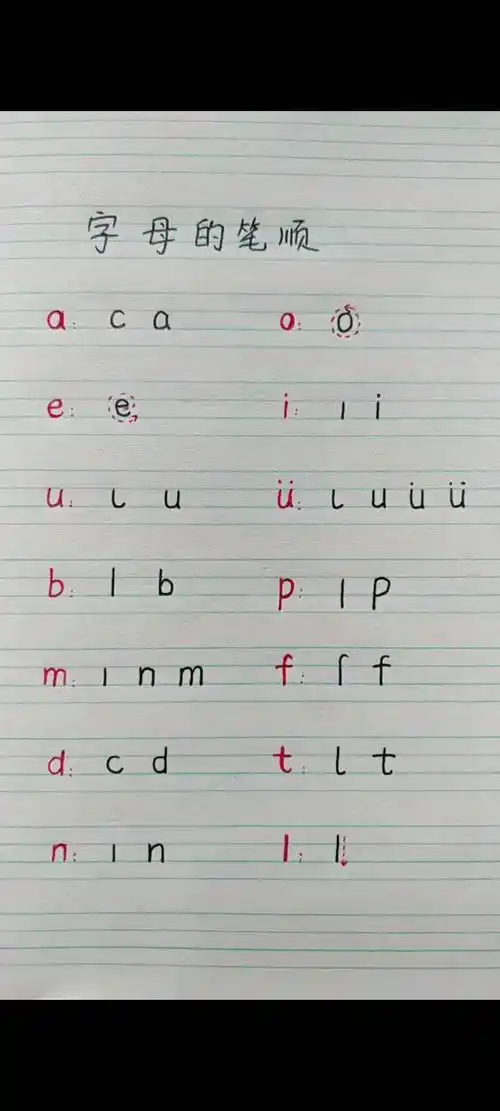 字母的笔顺
a: c a o: o
e: e i: ı i
u: ɩ u ü: ɩ u u̇ ü
b: l b p: l p
m: ı n m f: ſ f
d: c d t: l t
n: ı n l: l